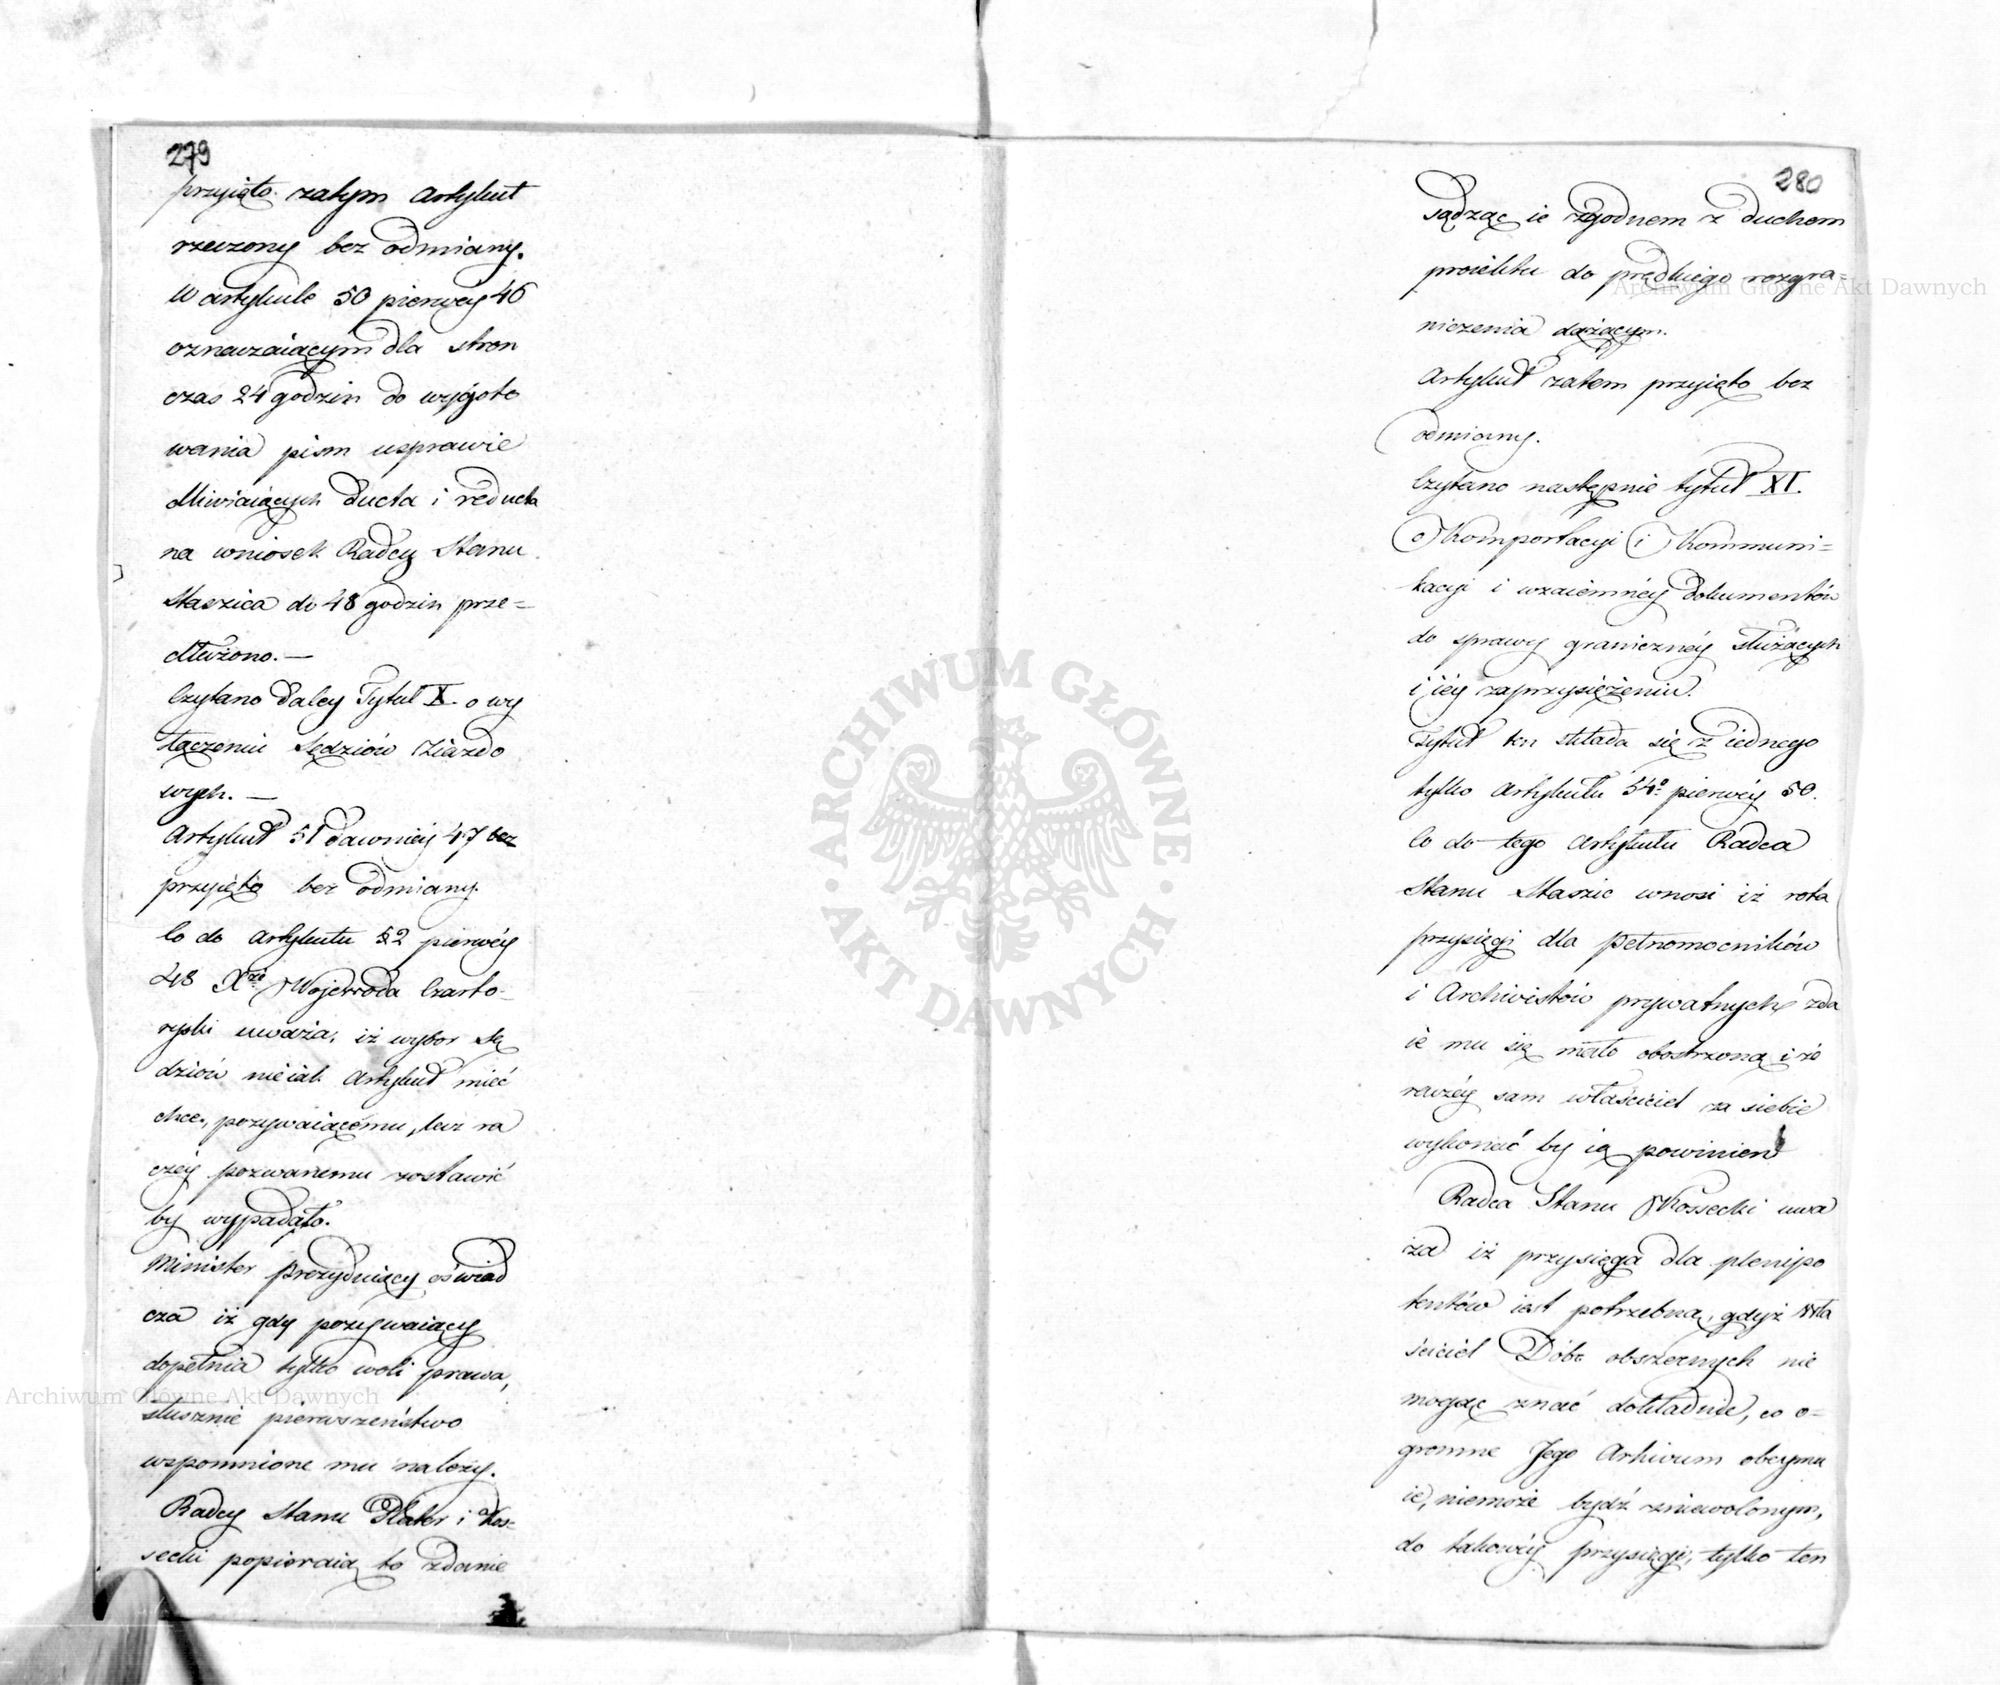 279
przyięto zatym Artykuł
rzeczony bez odmiany.
W artykule 50 pierwey 46
oznaczaiącym dla stron
czas 24 godzin do wygoto
wania pism usprawie
dliwiaiących Ducta i reducta
na wniosek Radcy Stanu
Staszica do 48 godzin prze=
dłużono.—
Czytano daley Tytuł X. o wy
łączeniu Sędziów Ziazdo
wych.—
Artykuł 51 dawniéy 47 bez
przyięto bez odmiany.
Co do Artykułu 52 pierwéy
48 Xże Wojewoda Czarto-
ryski uważa, iż wybor Sę
dziów nie iak Artykuł mieć
chce, pozywaiącemu, lecz ra
czéy pozwanemu zostawić
by wypadało.
Minister prezyduiący oświad
cza iż gdy pozywaiący
dopełnia tylko woli prawa,
słusznie pierwszeństwo
wspomnione mu należy.
Radcy Stanu Plater i Kos=
secki popieraią to zdanie
280
sądząc ie zgodnem z duchem
proiektu do prędkiego rozgra=
niczenia dążącym.
Artykuł zatem przyięto bez
odmiany.
Czytano następnie tytuł XI.
o Komportacyi i Kommuni=
kacyi i wzaiemnéy Dokumentów
do sprawy granicznéy służących
i iéy zaprzysiężeniu.
Tytuł ten składa się z iednego
tylko Artykułu 54o pierwéy 50.
Co do tego Artykułu Radca
Stanu Staszic wnosi iż rota
przysięgi dla pełnomocników
i Archivistów prywatnych zda
ie mu się mało obostrzoną i że
raczéy sam właściciel za siebie
wykonać by ią powinien
Radca Stanu Kossecki uwa
ża iż przysięga dla plenipo
tentów iest potrzebną, gdyż wła
ściciel Dóbr obszernych nie
mogąc znać dokładnie, co o=
gromne Jego Arhivum obeymu
ie, niemoże bydź zniewolonym,
do takowéy przysięgi, tylko ten
Archiwum Główne Akt Dawnych
Archiwum Główne Akt Dawnych
ARCHIWUM GŁÓWNE · AKT DAWNYCH ·